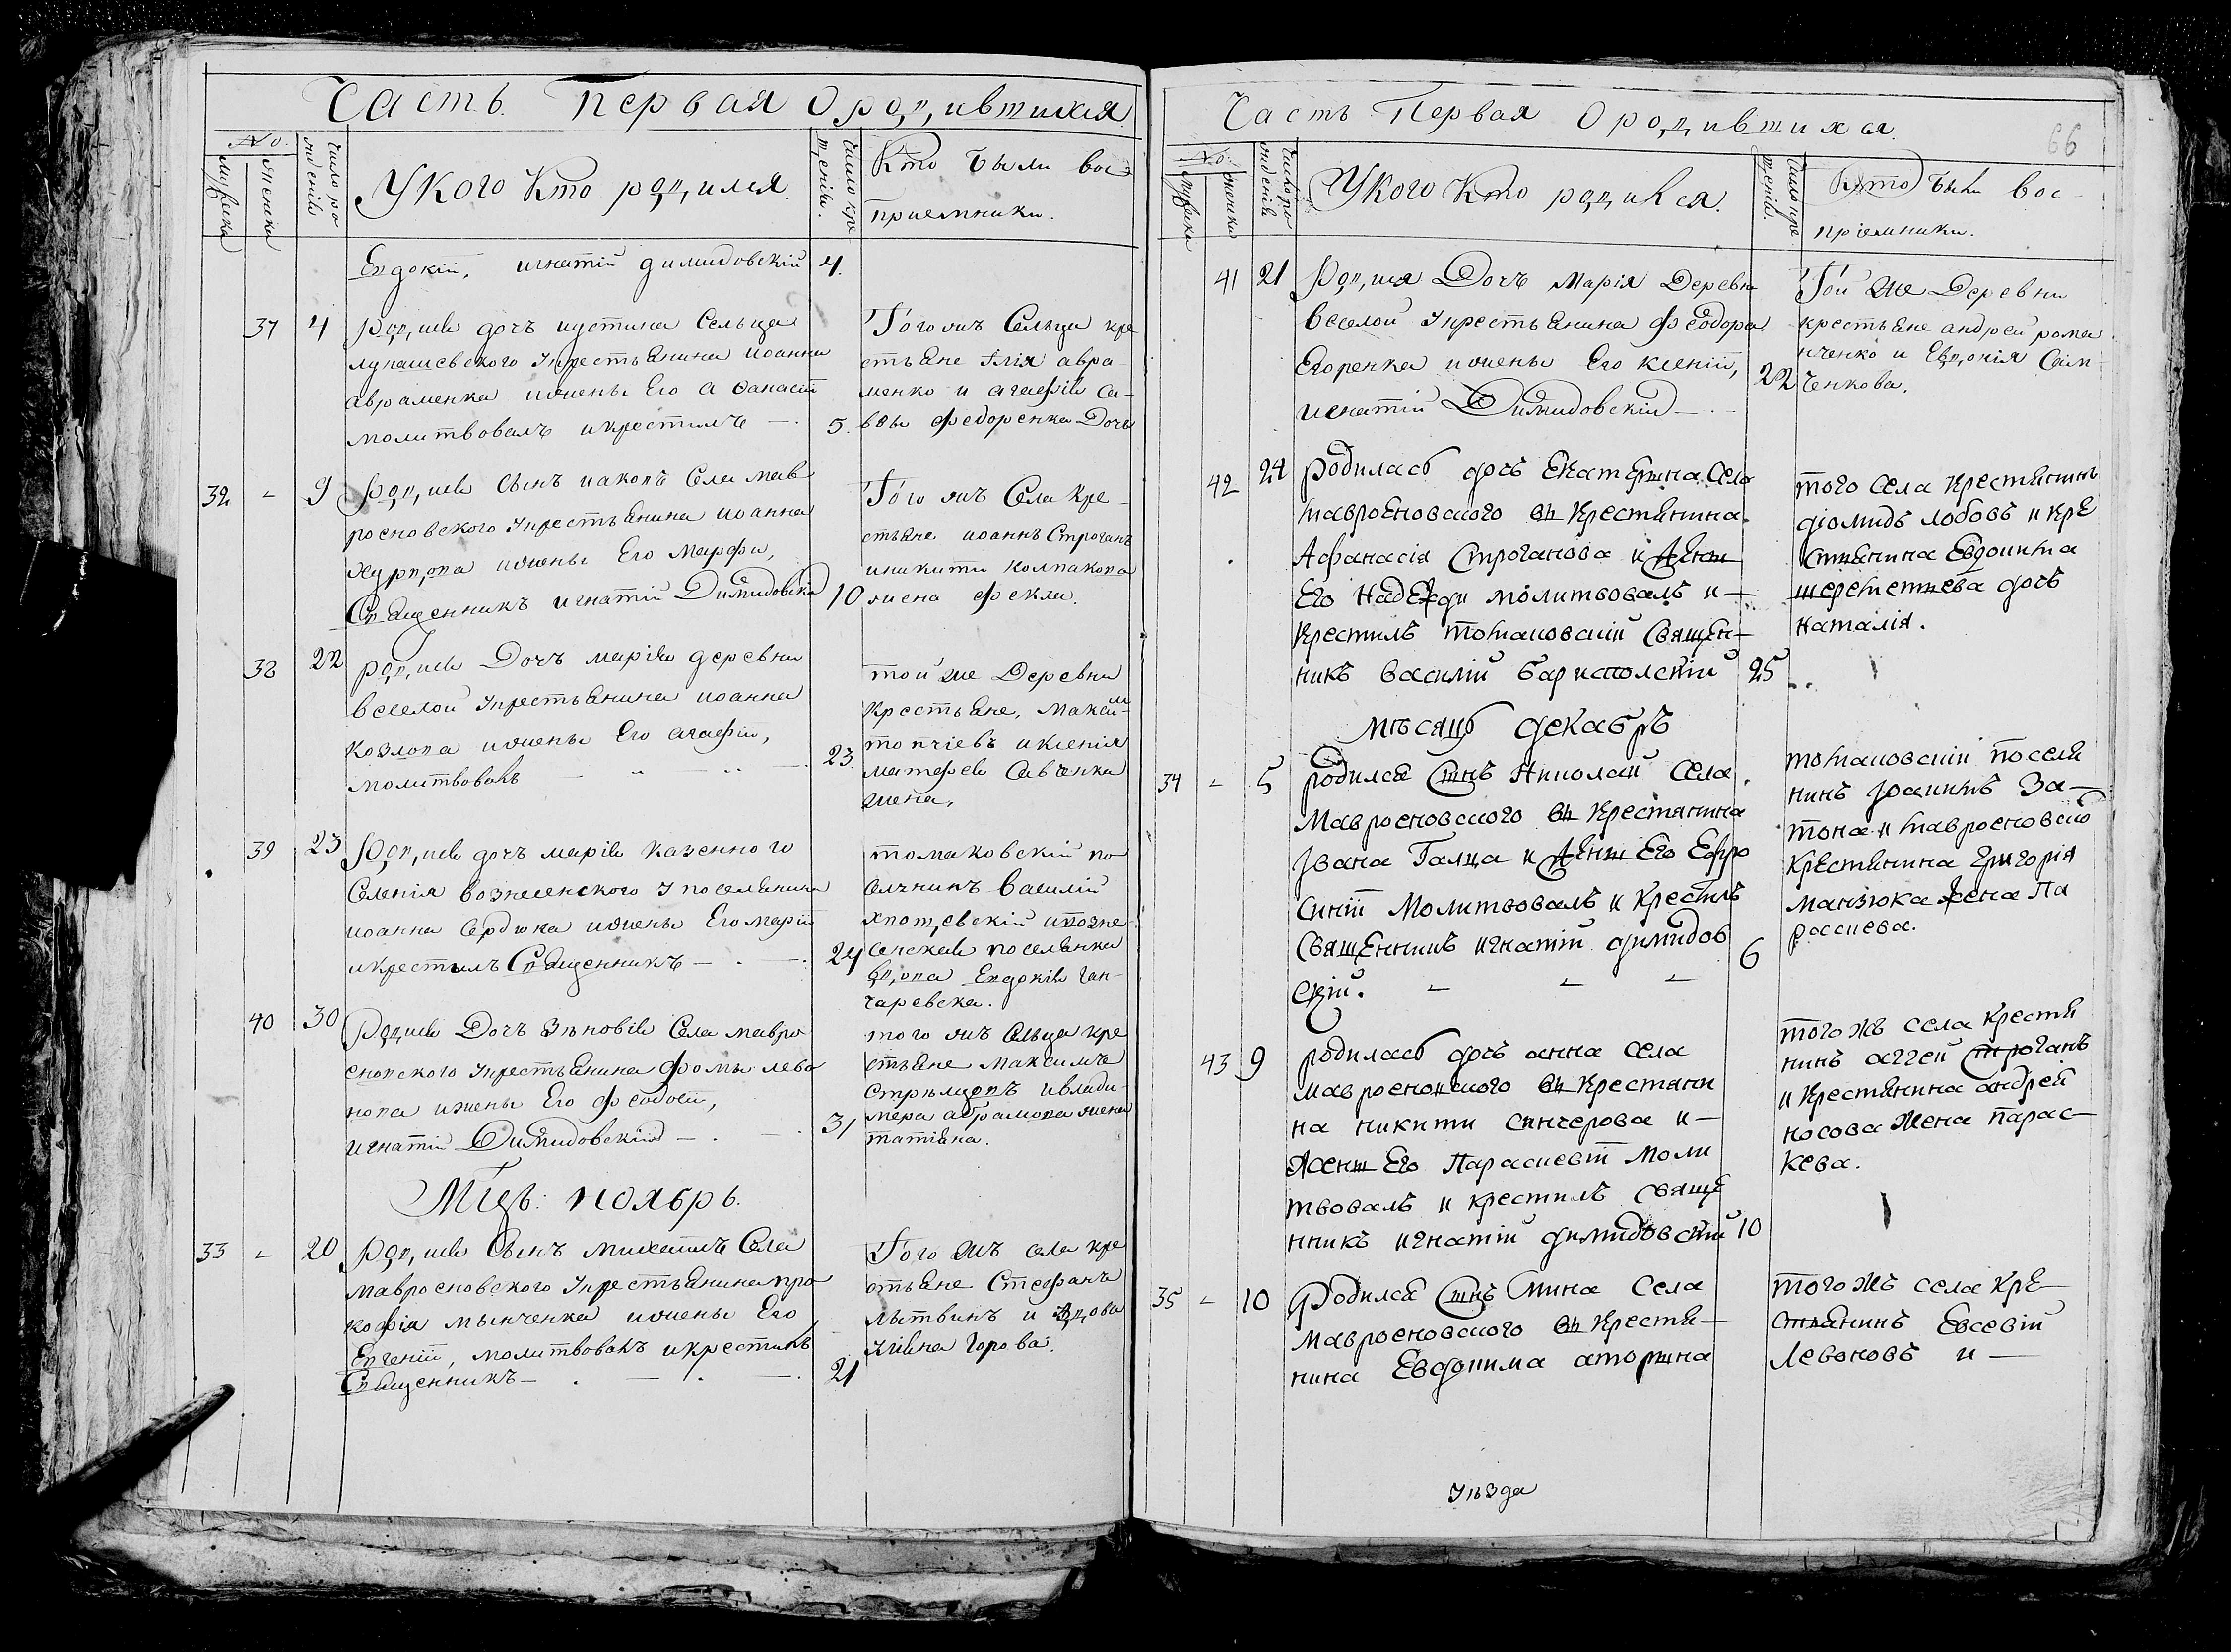 Часть Первая О родившихся
No.
мужеска
женска
Число рождения
У кого кто родился.
Число крещенія.
Кто были вос
приемники.
Евдокіи, игнатій димидовскій 4.
37 4 родился дочь иустина Сельца
лукашевского у крестьянина иоанна
авраменка и жены Его Афанасіи
молитвовалъ и крестилъ — 5.
Того жъ Сельца кре
стьяне Ілія авра-
менко и агафія са-
ввы федоренка Дочь
32 - 9 родился сынъ иаковъ Села мав
росновского у крестьянина иоанна
и жены Его Марфы,
Священникъ игнатій Димидовскій 10
Того жъ Села кре-
стьяне иоаннъ Строганъ
и никиты колпакова
жена Фекла.
38 22 родился Дочь марія деревни
веселой у крестьянина иоанна
козлова и жены Его агафіи,
молитвовалъ 23.
той же Деревни
крестьяне, Максимъ
топчіевъ и ксенія
матфея Савченка
жена,
39 23 родился дочь марія казенного
Селенія вознесенского у поселянина
иоанна Сердюка и жены Его маріи
и крестилъ Священникъ — 24
томаковскій по
селянинъ василій
и вознесенская поселянка
вдова Евдокія Ган-
чаревска.
40 30 родился Дочь Зѣновія Села мавро
сновского у крестьянина Фомы лева
нова и жены Его Феодосіи,
игнатій Димидовскій — 31
того жъ Сельца кре
стьяне Максимъ
Стрѣлцовъ и влади-
мера абрамова жена
татіана.
Мцъ: ноябрь.
33 - 20 родился Сынъ михаилъ Села
мавросновского у крестьянина про
кофія мынченка и жены Его
Евгеніи, молитвовалъ и крестилъ
Священникъ — 21
Того жъ села кре
стьяне Стефанъ
литвинъ и вдова
Горова.
Часть Первая О родившихся.
66
No.
мужеска
женска
Число рождения
У кого кто родился.
Число крещенія
Кто были вос
пріемники.
41 21 родился Дочь Марія Деревни
веселой у крестьянина феодора
Егоренка и жены Его ксеніи,
игнатій Димидовскій — 22
Той же Деревни
крестьяне андрей рома
нченко и Евдокія Сам
ченкова.
42 24 родиласъ дочъ Екатерина села
мавроеновского въ Крестянина
Афанасія Строганова и жены
Его Надежди молитвовалъ и —
Крестилъ томаковскій Священ—
никъ василій бариспол​скій 25
того села крестянинъ
діомидъ лобовъ и кре
стянина Евдокима
шереметева дочъ
наталія.
мѣсяцъ декабръ
34 - 5 родился Сынъ Николай села
Мавроеновского въ Крестянина
Івана Галца и жены Его Ефро
синіи Молитвовалъ и Крестилъ
Священникъ игнатій димидов
скій. 6
томаковскій поселя
нинъ Іоаннъ За—
тона и мавроеновско
Крестянина Григорія
Манзюка жена Па
раскева.
43 9 родиласъ дочъ анна села
мавроеновского въ Крестяни
на никити синчерова и —
жены Его Параскевіи Моли
твовалъ и крестилъ Свяще
нникъ игнатій димидовскій 10
того жъ села крестя
нинъ аггей строганъ
и Крестянина андрей
носова жена Парас—
кева.
35 - 10 Родился Сынъ Мина Села
Мавроеновского въ Крестя—
нина Евдокима аторина
того жъ села кре—
стянинъ Евсевій
Левоновъ и —
уѣзда